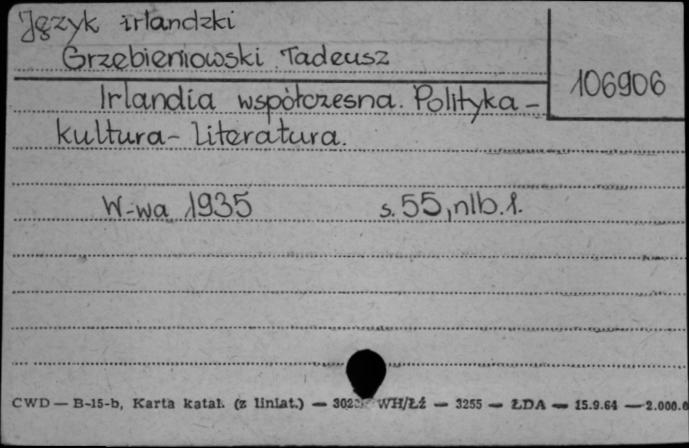 Język irlandzki
Grzebieniowski Tadeusz
106906
Irlandia współczesna. Polityka -
kultura - literatura.
W-wa 1935 s. 55, nlb. 1.
CWD — B-15-b, Karta katal. (z liniat.) — WH/Łź — 3255 — ŁDA — 15.9.64 — 2.000.0